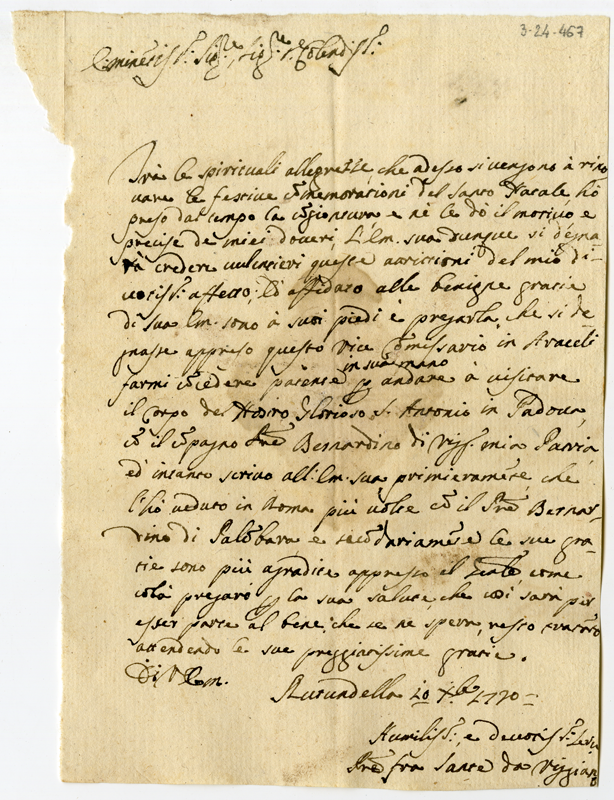 3-24-467
Eminētiss:º Sigʳᵉ, Sigʳᵉ e Colendiss:º
Trà le spirituali allegrezze, che adesso si vengono à rino
vare le festive cōmemorationi del Santo Natale, hò
preso dal tempo la cōgiontura e nè le dò il motivo e
precise de miei doveri, L'Em. sua dunque si degna
rà credere vulintieri queste
votiss:º affetto; Ed affidato alle benigne gratie
di sua Em. sono à suoi piedi è pregarla, che si de
gnasse appreso questo vice Cōmissario in Araceli
farmi cōcedere patente in sua mano p andare à visitare
il corpo del Nostro Glorioso S. Antonio in Padova,
cō il cōpagno Frē Bernardino di Vigg: mia Patria
ed' intanto scrivo all: Em. sua primieramēte, che
l'hò veduto in Roma più volte cō il Prē Bernar-
dino di Palōbara e secōdariamēte le sue gra-
tie sono più agradite appresso il come
colà pregarò p la sua salute, che cosi sarà per
esser parte al bene, che se ne spera, resto
attendendo le sue preggiatissime gratie.
Di V. Em.
Rutundella 20 Xbre 1770
Humiliss:º, e devotiss:º
Frē fra Sante da Viggiano